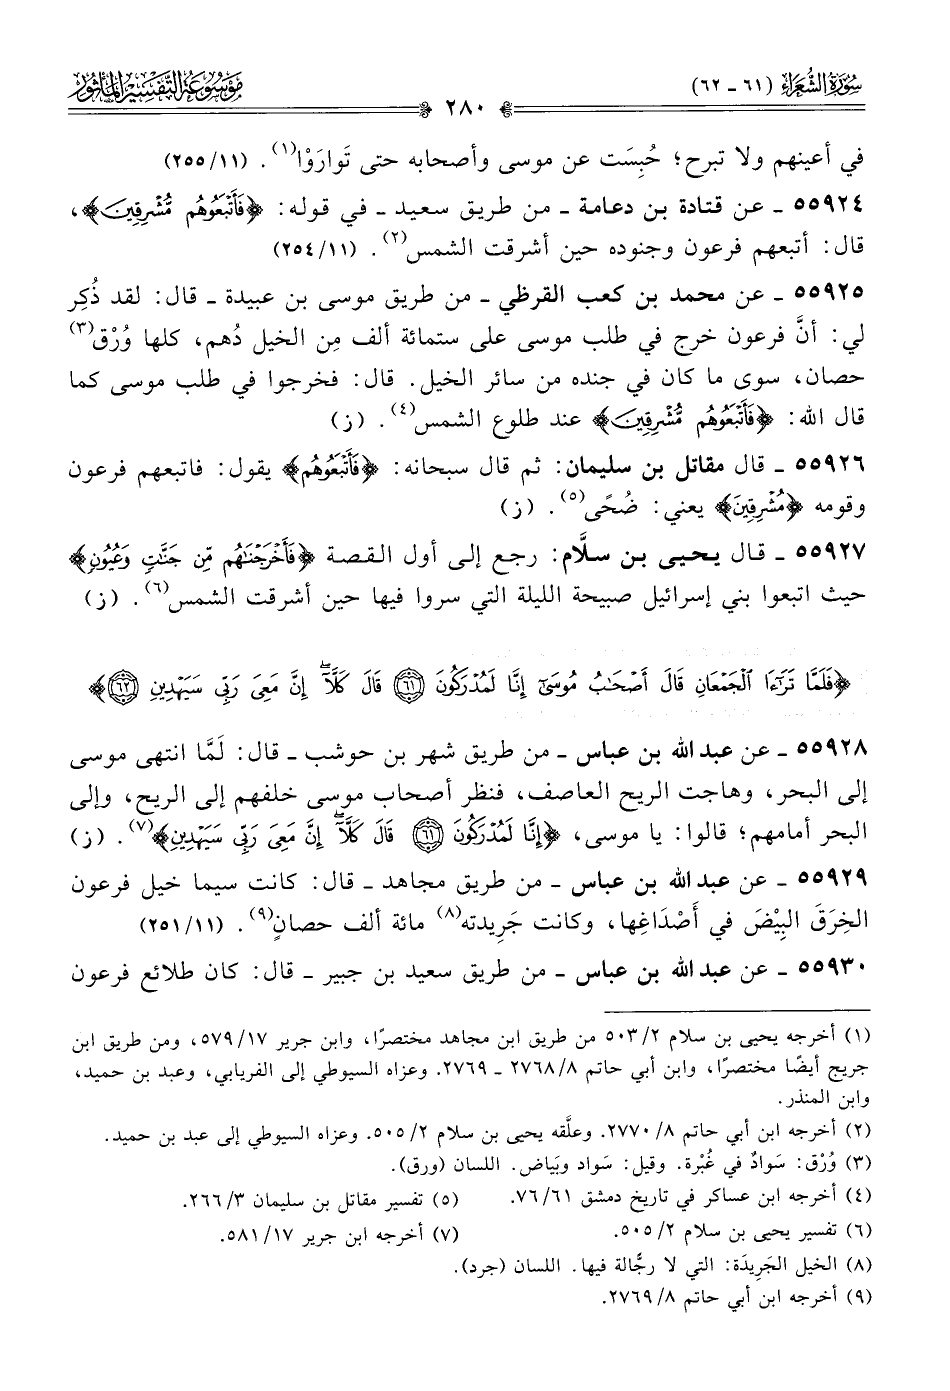 سُورَةُ الشُّعَرَاءِ (٦١ - ٦٢)
مَوْسُوعَة التَّفْسِيْرِ المَأْثُور
٢٨٠
في أعينهم ولا تبرح؛ حُبِسَت عن موسى وأصحابه حتى تَوارَوْا(١). (٢٥٥/١١)
٥٥٩٢٤ ـ عن قتادة بن دعامة ـ من طريق سعيد ـ في قوله: ﴿فَأَتْبَعُوهُم مُّشْرِقِينَ﴾،
قال: أتبعهم فرعون وجنوده حين أشرقت الشمس(٢). (٢٥٤/١١)
٥٥٩٢٥ ـ عن محمد بن كعب القرظي ـ من طريق موسى بن عبيدة ـ قال: لقد ذُكِر
لي: أنَّ فرعون خرج في طلب موسى على ستمائة ألف مِن الخيل دُهم، كلها وُرْق(٣)
حصان، سوى ما كان في جنده من سائر الخيل. قال: فخرجوا في طلب موسى كما
قال الله: ﴿فَأَتْبَعُوهُم مُّشْرِقِينَ﴾ عند طلوع الشمس(٤). (ز)
٥٥٩٢٦ ـ قال مقاتل بن سليمان: ثم قال سبحانه: ﴿فَأَتْبَعُوهُم﴾ يقول: فاتبعهم فرعون
وقومه ﴿مُشْرِقِينَ﴾ يعني: ضُحًى(٥). (ز)
٥٥٩٢٧ ـ قال يحيى بن سلَّام: رجع إلى أول القصة ﴿فَأَخْرَجْنَاهُم مِّن جَنَّاتٍ وَعُيُونٍ﴾
حيث اتبعوا بني إسرائيل صبيحة الليلة التي سروا فيها حين أشرقت الشمس(٦). (ز)
﴿فَلَمَّا تَرَاءَا الْجَمْعَانِ قَالَ أَصْحَابُ مُوسَىٰ إِنَّا لَمُدْرَكُونَ ٦١ قَالَ كَلَّا إِنَّ مَعِيَ رَبِّي سَيَهْدِينِ ٦٢﴾
٥٥٩٢٨ ـ عن عبد الله بن عباس ـ من طريق شهر بن حوشب ـ قال: لَمَّا انتهى موسى
إلى البحر، وهاجت الريح العاصف، فنظر أصحاب موسى خلفهم إلى الريح، وإلى
البحر أمامهم؛ قالوا: يا موسى، ﴿إِنَّا لَمُدْرَكُونَ ٦١ قَالَ كَلَّا إِنَّ مَعِيَ رَبِّي سَيَهْدِينِ﴾(٧). (ز)
٥٥٩٢٩ ـ عن عبد الله بن عباس ـ من طريق مجاهد ـ قال: كانت سيما خيل فرعون
الخِرَقَ البِيْضَ في أَصْدَاغِها، وكانت جَرِيدته(٨) مائة ألف حصانٍ(٩). (٢٥١/١١)
٥٥٩٣٠ ـ عن عبد الله بن عباس ـ من طريق سعيد بن جبير ـ قال: كان طلائع فرعون
(١) أخرجه يحيى بن سلام ٥٠٣/٢ من طريق ابن مجاهد مختصرًا، وابن جرير ٥٧٩/١٧، ومن طريق ابن
جريج أيضًا مختصرًا، وابن أبي حاتم ٢٧٦٨/٨ ـ ٢٧٦٩. وعزاه السيوطي إلى الفريابي، وعبد بن حميد،
وابن المنذر.
(٢) أخرجه ابن أبي حاتم ٢٧٧٠/٨. وعلَّقه يحيى بن سلام ٥٠٥/٢. وعزاه السيوطي إلى عبد بن حميد.
(٣) وُرْق: سَوادٌ في غُبْرة. وقيل: سَواد وبَياض. اللسان (ورق).
(٤) أخرجه ابن عساكر في تاريخ دمشق ٧٦/٦١. (٥) تفسير مقاتل بن سليمان ٢٦٦/٣.
(٦) تفسير يحيى بن سلام ٥٠٥/٢. (٧) أخرجه ابن جرير ٥٨١/١٧.
(٨) الخيل الجَرِيدَة: التي لا رجَّالة فيها. اللسان (جرد).
(٩) أخرجه ابن أبي حاتم ٢٧٦٩/٨.